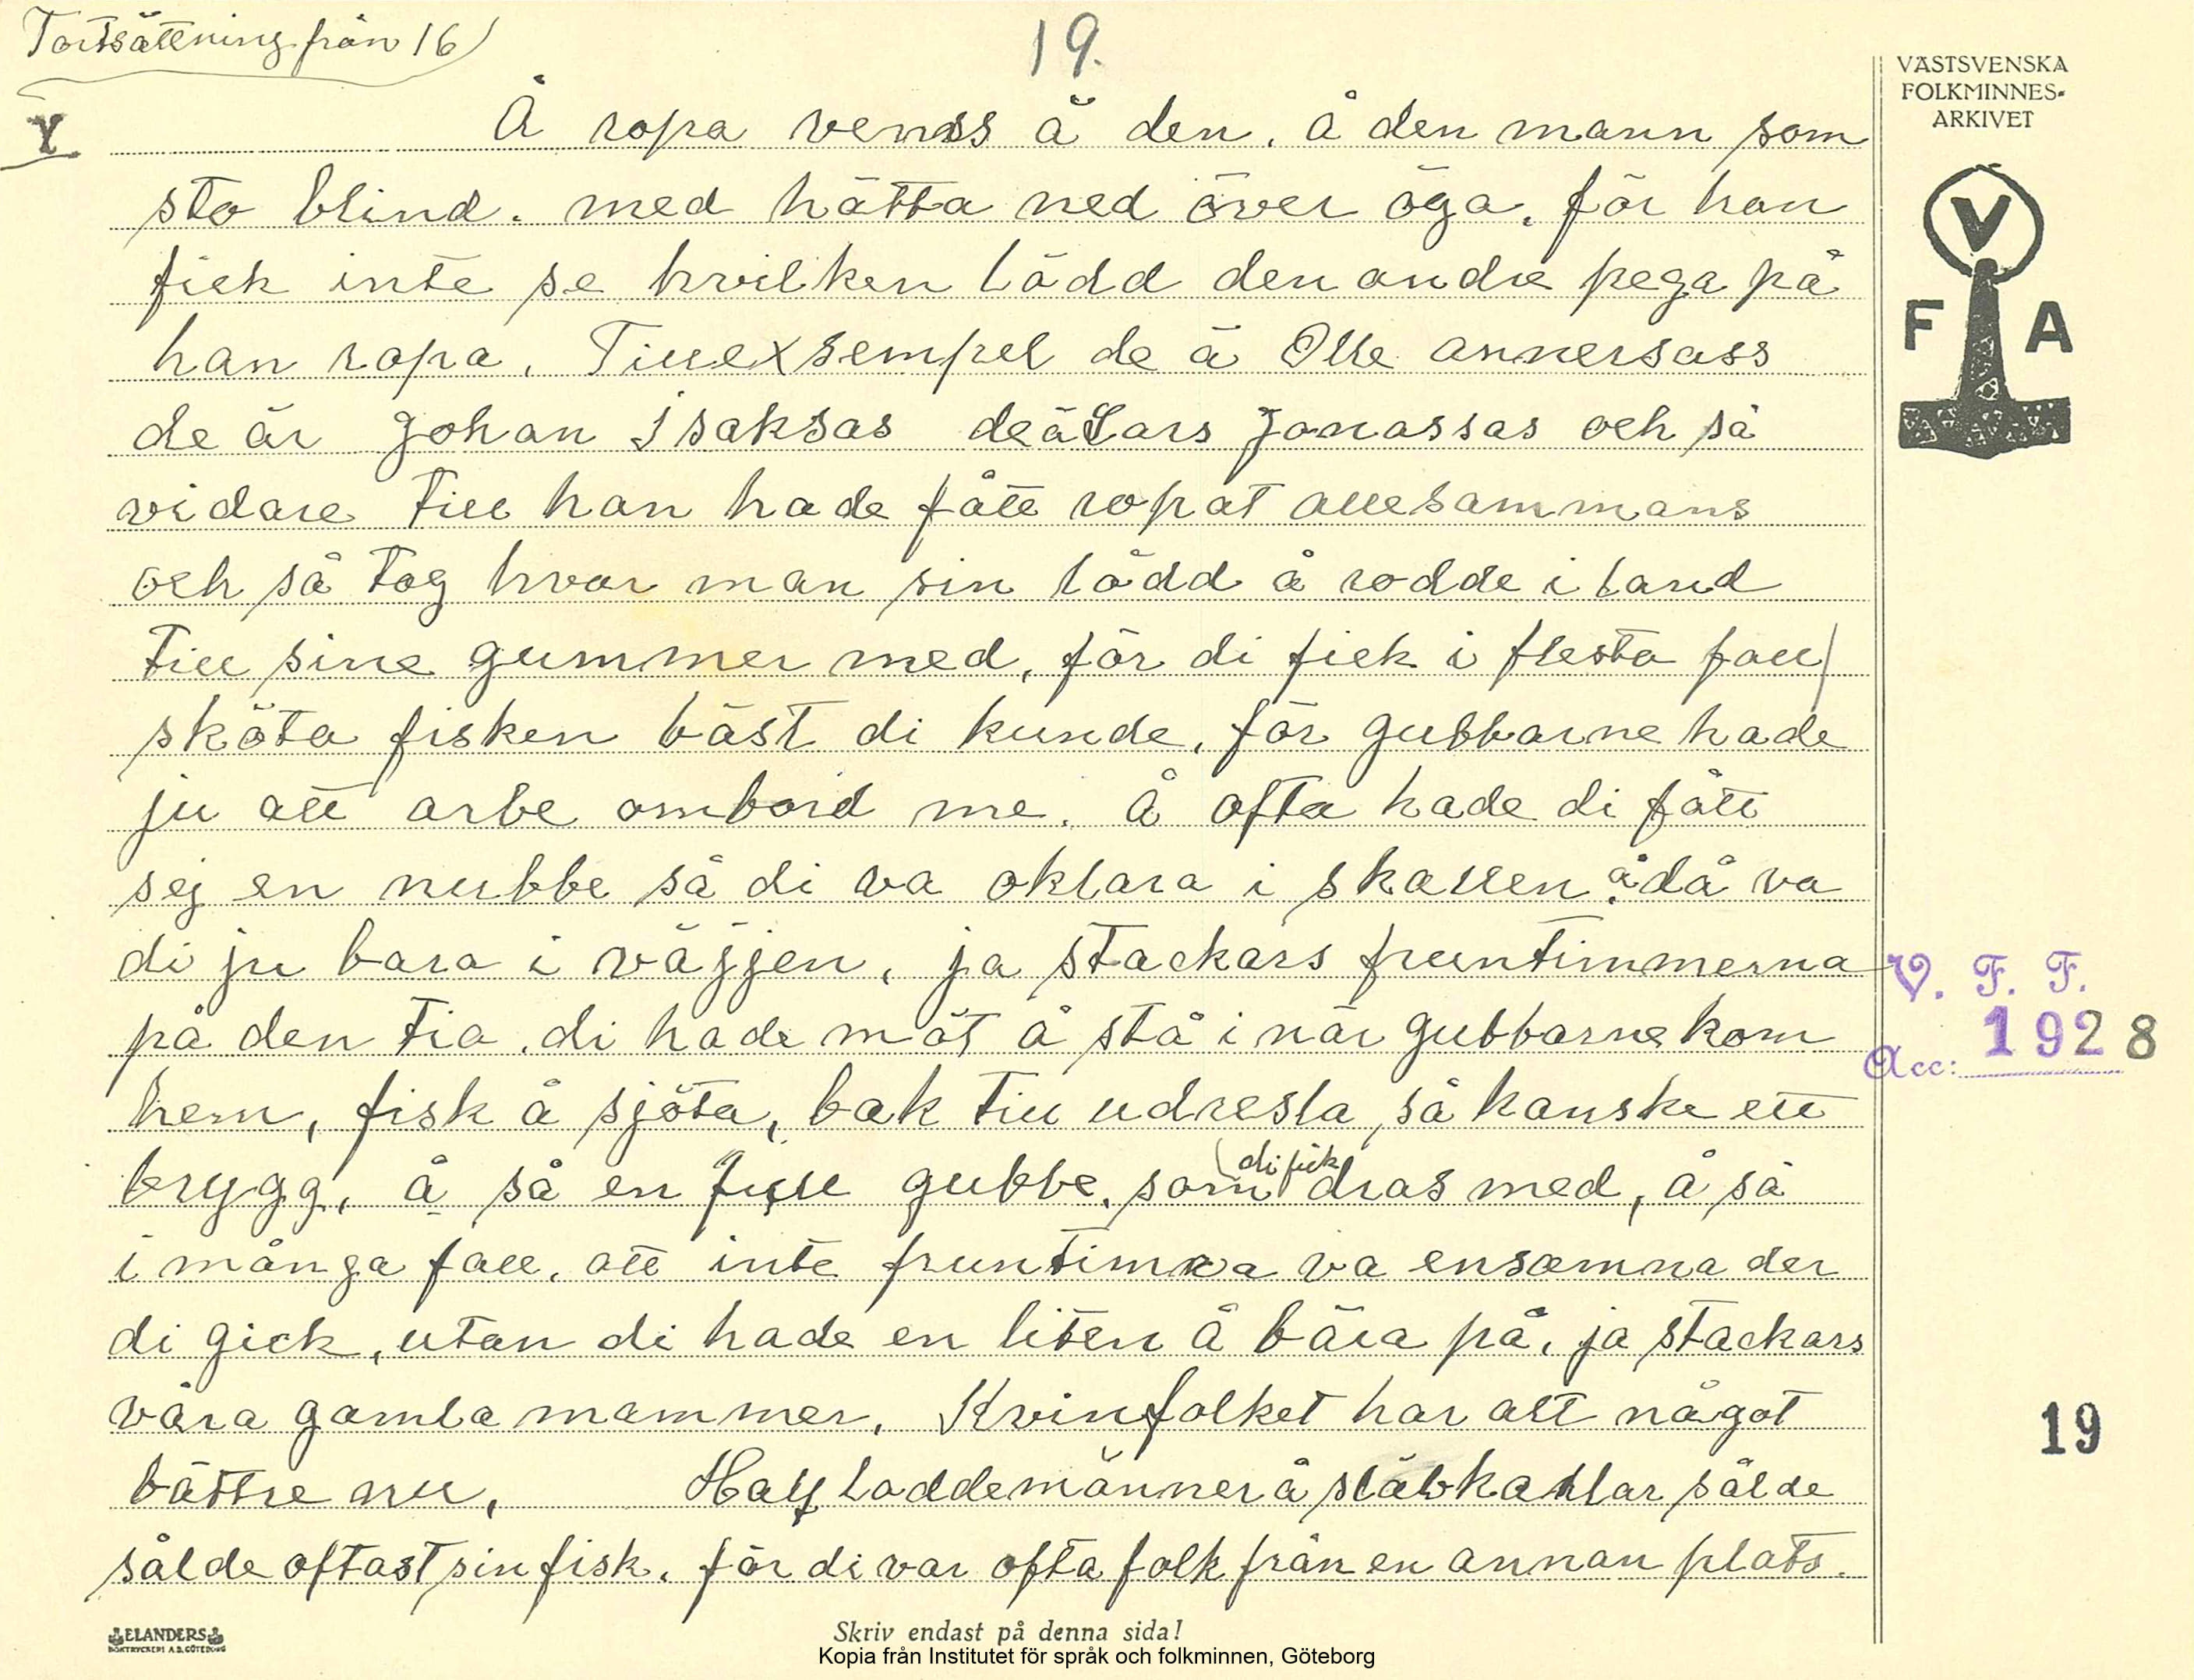 Fortsättning från 16)
19.
VÄSTSVENSKA
FOLKMINNES-
ARKIVET
Å ropa venss ä den. å den mann som
sto blind. med hätta ned över öga. för han
fick inte se hvilken lådd den andre pega på
han ropa. Till exsempel de ä Olle annersass
de är Johan Isaksas de ä Lars Jonassas och så
vidare till han hade fått ropat allesammans
och så tog hvar man sin lådd å rodde i land
till sine gummer med, för di fick i flesta fall
sköta fisken bäst di kunde, för gubbarne hade
ju att arbe ombord me. Å ofta hade di fått
sej en nubbe så di va oklara i skallen. å då va
di ju bara i väjjen, ja stackars fruntimmerna
på den tia. di hade möt å stå i när gubbarne kom
hem, fisk å sjöta, bak till udresla, så kanske ett
brygg, å så en full gubbe. som di fick dras med, å så
i många fall. att inte fruntimra va ensamna der
di gick, utan di hade en liten å bära på, ja stackars
våra gamla mammer. Kvinfolket har allt något
bättre nu, Half loddemänner å släbkallar sålde
sålde oftast sin fisk. för di var ofta folk från en annan plats.
V
F A
V. F. F.
Acc: 1928
19
ELANDERS
BOKTRYCKERI A.B. GÖTEBORG
Skriv endast på denna sida!
Kopia från Institutet för språk och folkminnen, Göteborg